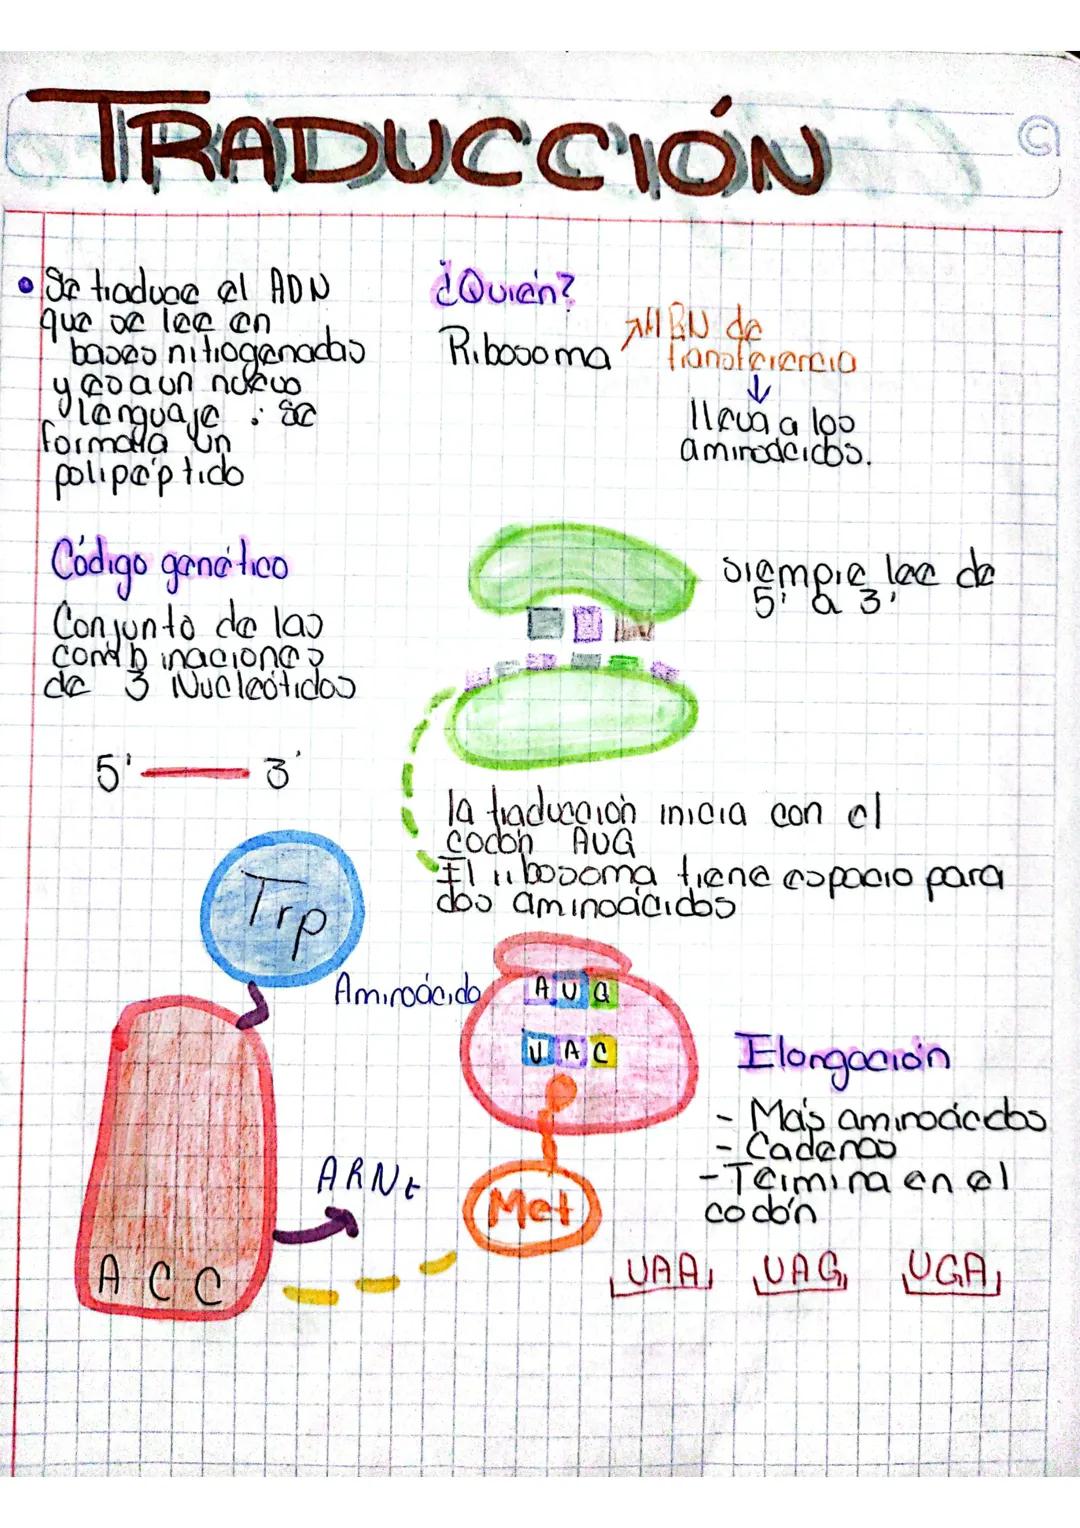 TRADUCCIÓN
• Se traduce el ADN
que se lee en
bases nitrogenadas
y eso a un nuevo
lenguaje : se
formara un
polipéptido
¿Quién?
Ribosoma
ARN de
transferencia
lleva a los
aminoácidos.
Código genético
Conjunto de las
combinaciones
de 3 Nucleótidos
5' 3'
siempre lee de
5' a 3'
la traducción inicia con el
codón AUG
El ribosoma tiene espacio para
dos aminoácidos
Trp
Aminoácido
ARNt
A C C
A U G
U A C
Met
Elongación
- Más aminoácidos
- Cadenas
- Termina en el
codón
UAA UAG UGA